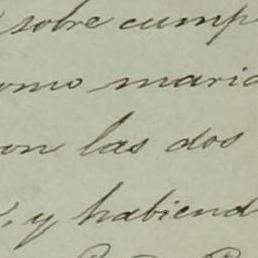 sobre cump
omo marid
on las dos
, y habiend